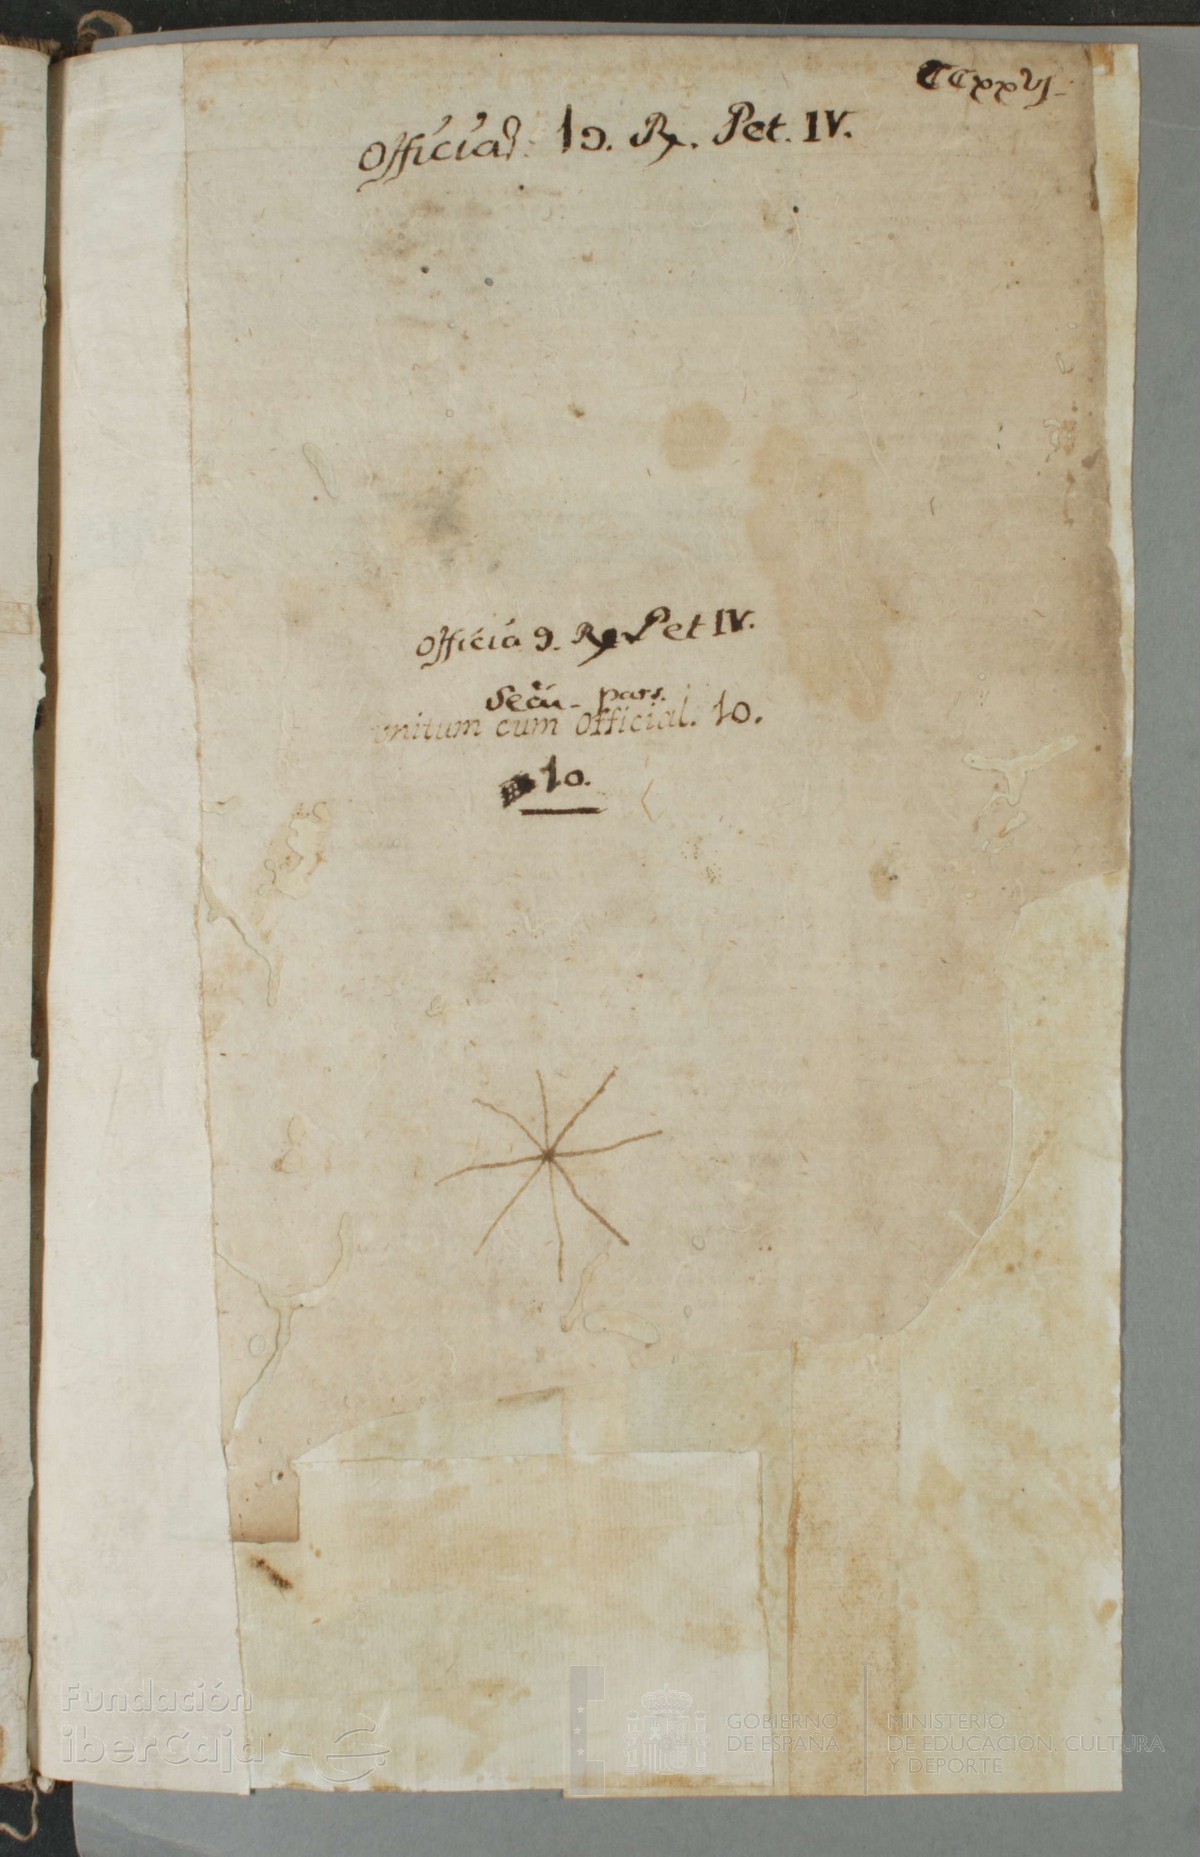 CCxxvj
Official. 10. Rx. Pet. IV.
Officia 9. Rx Pet IV.
Secũ- pars.
unitum cum Official. 10.
10.
Fundación
iberCaja
GOBIERNO
DE ESPAÑA
MINISTERIO
DE EDUCACIÓN, CULTURA
Y DEPORTE